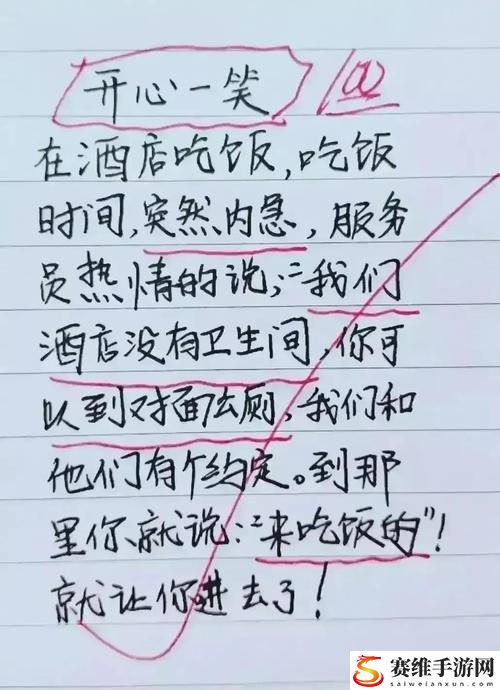 开心一笑
100
在酒店吃饭,吃饭
时间,突然内急,服务
员热情的说;"我们
酒店没有卫生间,你可
以到对面公厕,我们和
他们有个约定。到那
里你就说:"来吃饭的"!
就让你进去了!
赛维手游网
saiweianxun.com